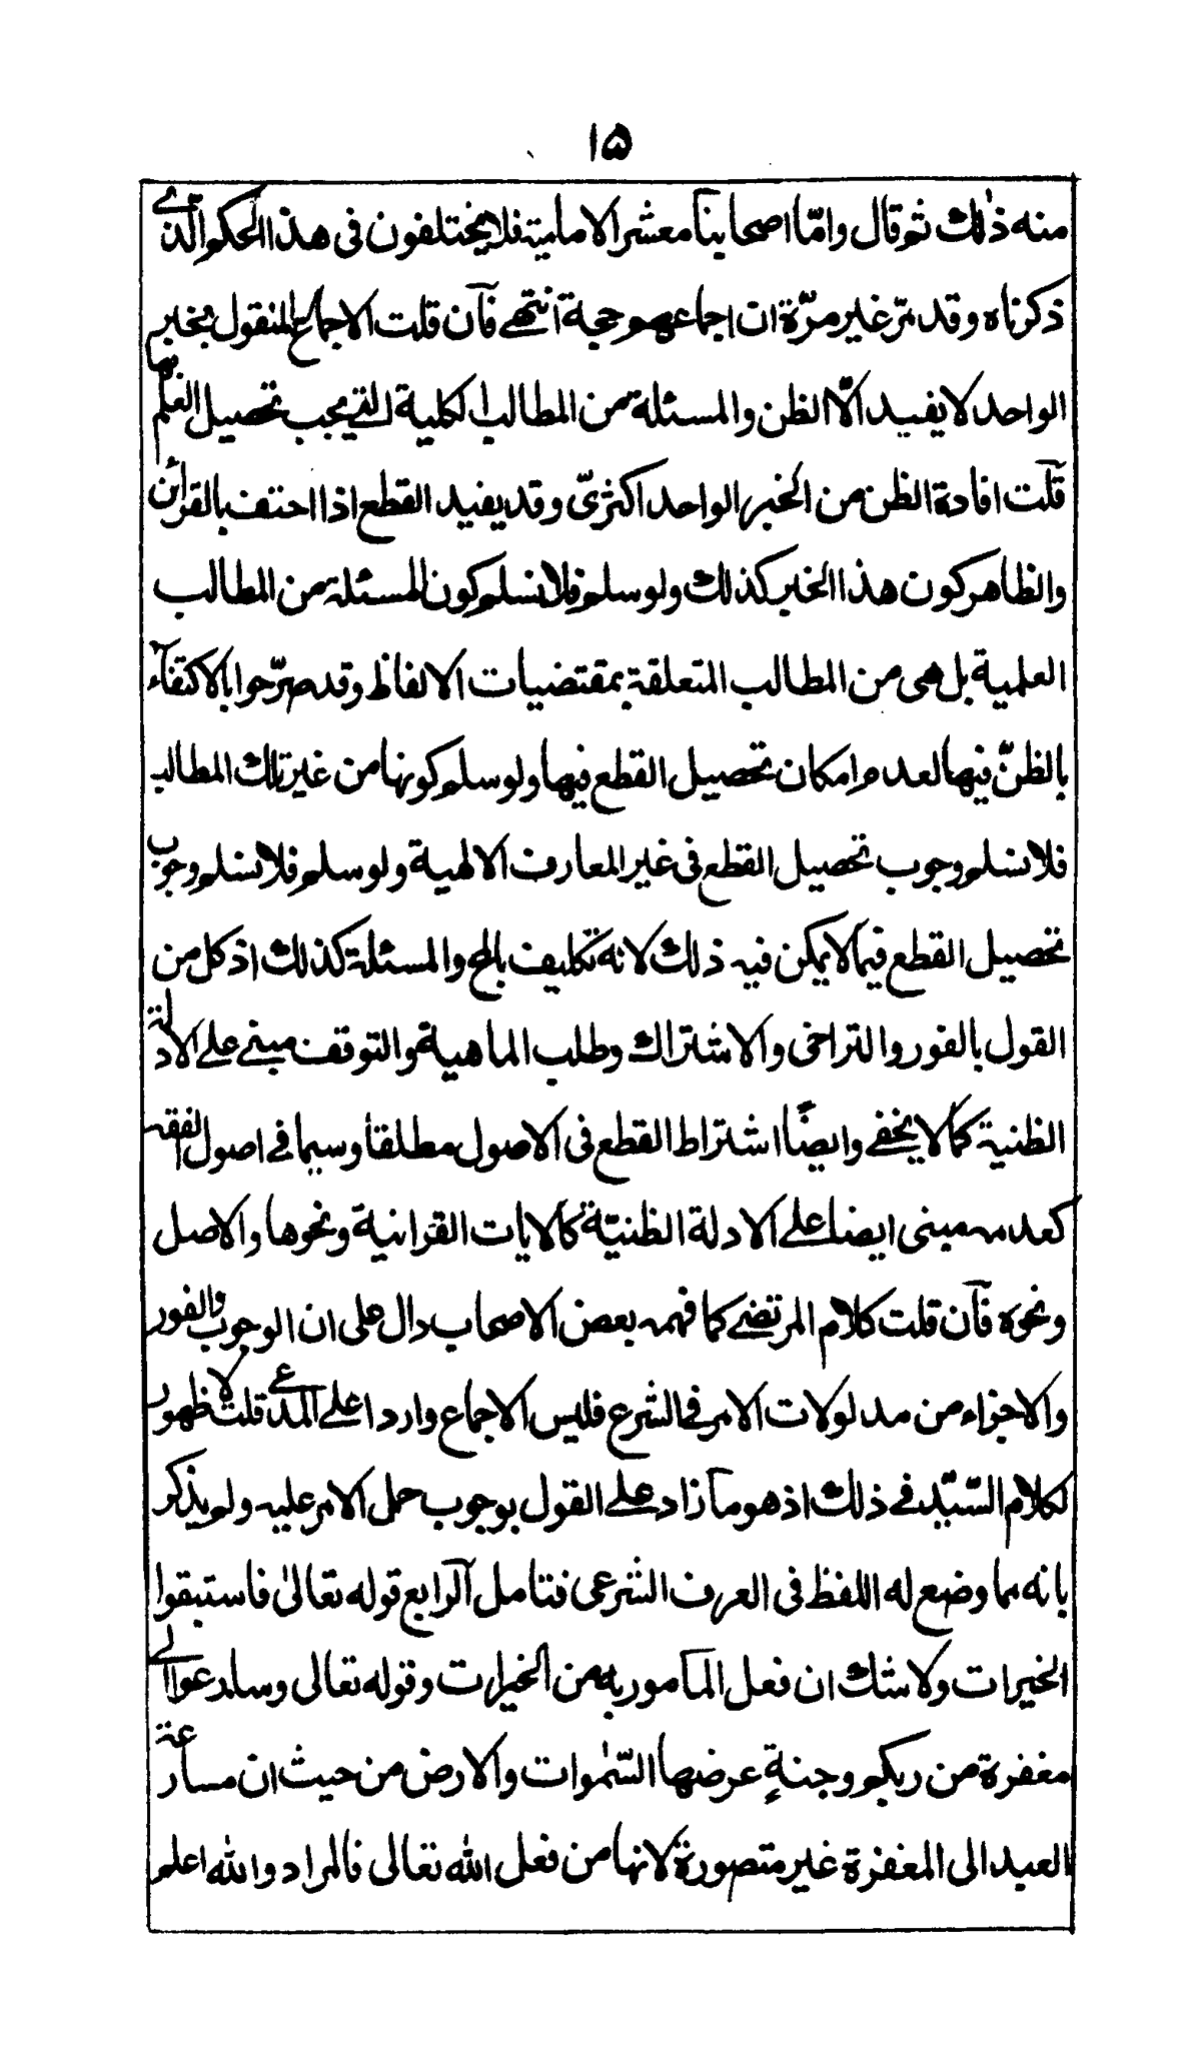 ۱۵
منه ذلك ثم قال وامّا اصحابنا معشر الامامية فلا يختلفون فى هذا الحكم الذى
ذكرناه وقد مرّ غير مرّة ان اجماعهم حجة انتهى فآن قلت الاجماع المنقول بخبر
الواحد لا يفيد الّا الظن والمسئلة من المطالب الكلية التى يجب تحصيل العلم بها
قلت افادة الظن من الخبر الواحد اكثرىّ وقد يفيد القطع اذا احتف بالقرائن
والظاهر كون هذا الخبر كذلك ولو سلم فلا نسلم كون المسئلة من المطالب
العلمية بل هى من المطالب المتعلقة بمقتضيات الالفاظ وقد صرّحوا بالاكتفآء
بالظنّ فيها لعدم امكان تحصيل القطع فيها ولو سلم كونها من غير تلك المطالب
فلا نسلم وجوب تحصيل القطع فى غير المعارف الالهية ولو سلم فلا نسلم وجوب
تحصيل القطع فيما لا يمكن فيه ذلك لانه تكليف بالمح والمسئلة كذلك اذ كل من
القول بالفور والتراخى والاشتراك وطلب الماهية والتوقف مبنى على الادلة
الظنية كما لا يخفى وايضًا اشتراط القطع فى الاصول مطلقا وسيما فى اصول الفقه
كعدمه مبنى ايضا على الادلة الظنيّة كالايات القرانية ونحوها والاصل
ونحوه فآن قلت كلام المرتضى كما فهمه بعض الاصحاب دال على ان الوجوب والفور
والاجزاء من مدلولات الامر فى الشرع فليس الاجماع واردا على المدعى قلت لا ظهور
لكلام السّيّد فى ذلك اذ هو ما زاد على القول بوجوب حمل الامر عليه ولم يذكر
بانه مما وضع له اللفظ فى العرف الشرعى فتامل آلرابع قوله تعالىٰ فاستبقوا
الخيرات ولا شك ان فعل المآمور به من الخيرات وقوله تعالى وسارعوا الى
مغفرة من ربكم وجنةٍ عرضها السّمٰوات والارض من حيث ان مسارعة
العبد الى المغفرة غير متصورة لانها من فعل الله تعالى فالمراد والله اعلم